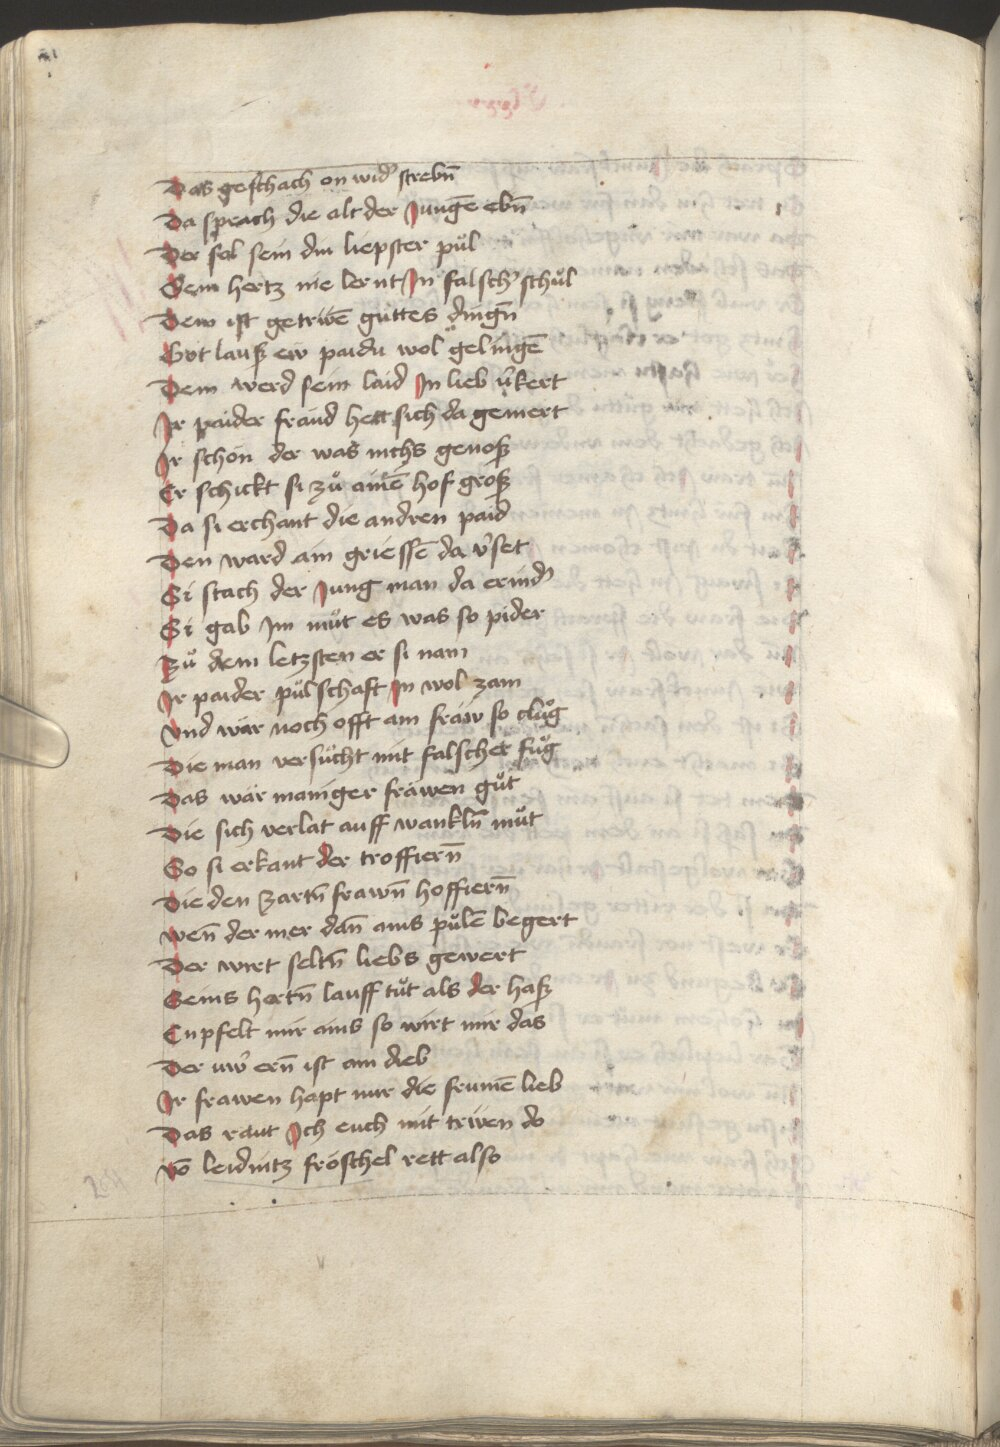 Das geschach on widˀ strebn̄
Da sprach die alt der Jungē ebn̄
Der sol sein din liepster půl
Dem hertz nie lernt Jn falschˀ schůl
Dem ist getriwē guttes dingn̄
Got lauß ew paidu wol gelingē
Dem werd sein laid Jn lieb v̓kert
Jr paider fraud hett sich da gemert
Jr schon der was nichs genoß
Er schickt si zů ainē hof groß
Da si erchant die andren paid
Den ward ain griessē da v̓set
Si stach der Jung man da erindˀ
Si gab Jm můt es was so pider
Zů dem letzsten er si nam
Jr paider půlschaft Jn wol zam
Vnd wär noch offt ain fraw so clůg
Die man versůcht mit falscher fůg
Das wär maniger frawen gůt
Die sich verlat auff wankln̄ můt
So si erkant der troffiern̄
Die den zartn̄ frawn̄ hoffiern̄
wen̄ der mer dan̄ ains půlē begert
Der wirt seltn̄ liebs gewert
Seins hertn̄ lauff tůt als der haß
Enpfelt mir ains so wirt mir das
Der ern̄ ist ain dieb
Jr frawen hapt nur die frumē lieb
Das raut Jch euch mit triwen do
vō leidnitz fröschel rett also